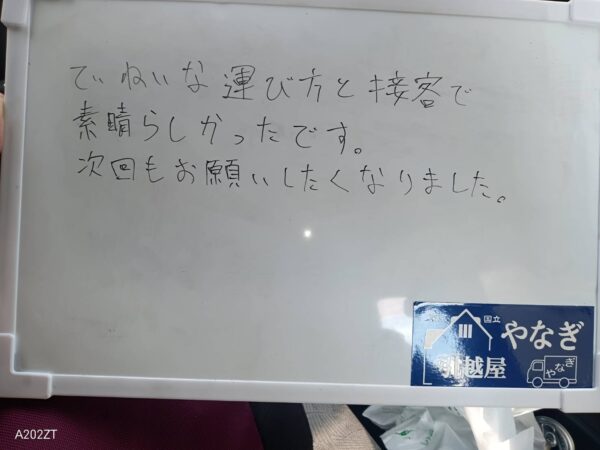 ていねいな運び方と接客で
素晴らしかったです。
次回もお願いしたくなりました。
国立
やなぎ
引越屋
やなぎ
A202ZT